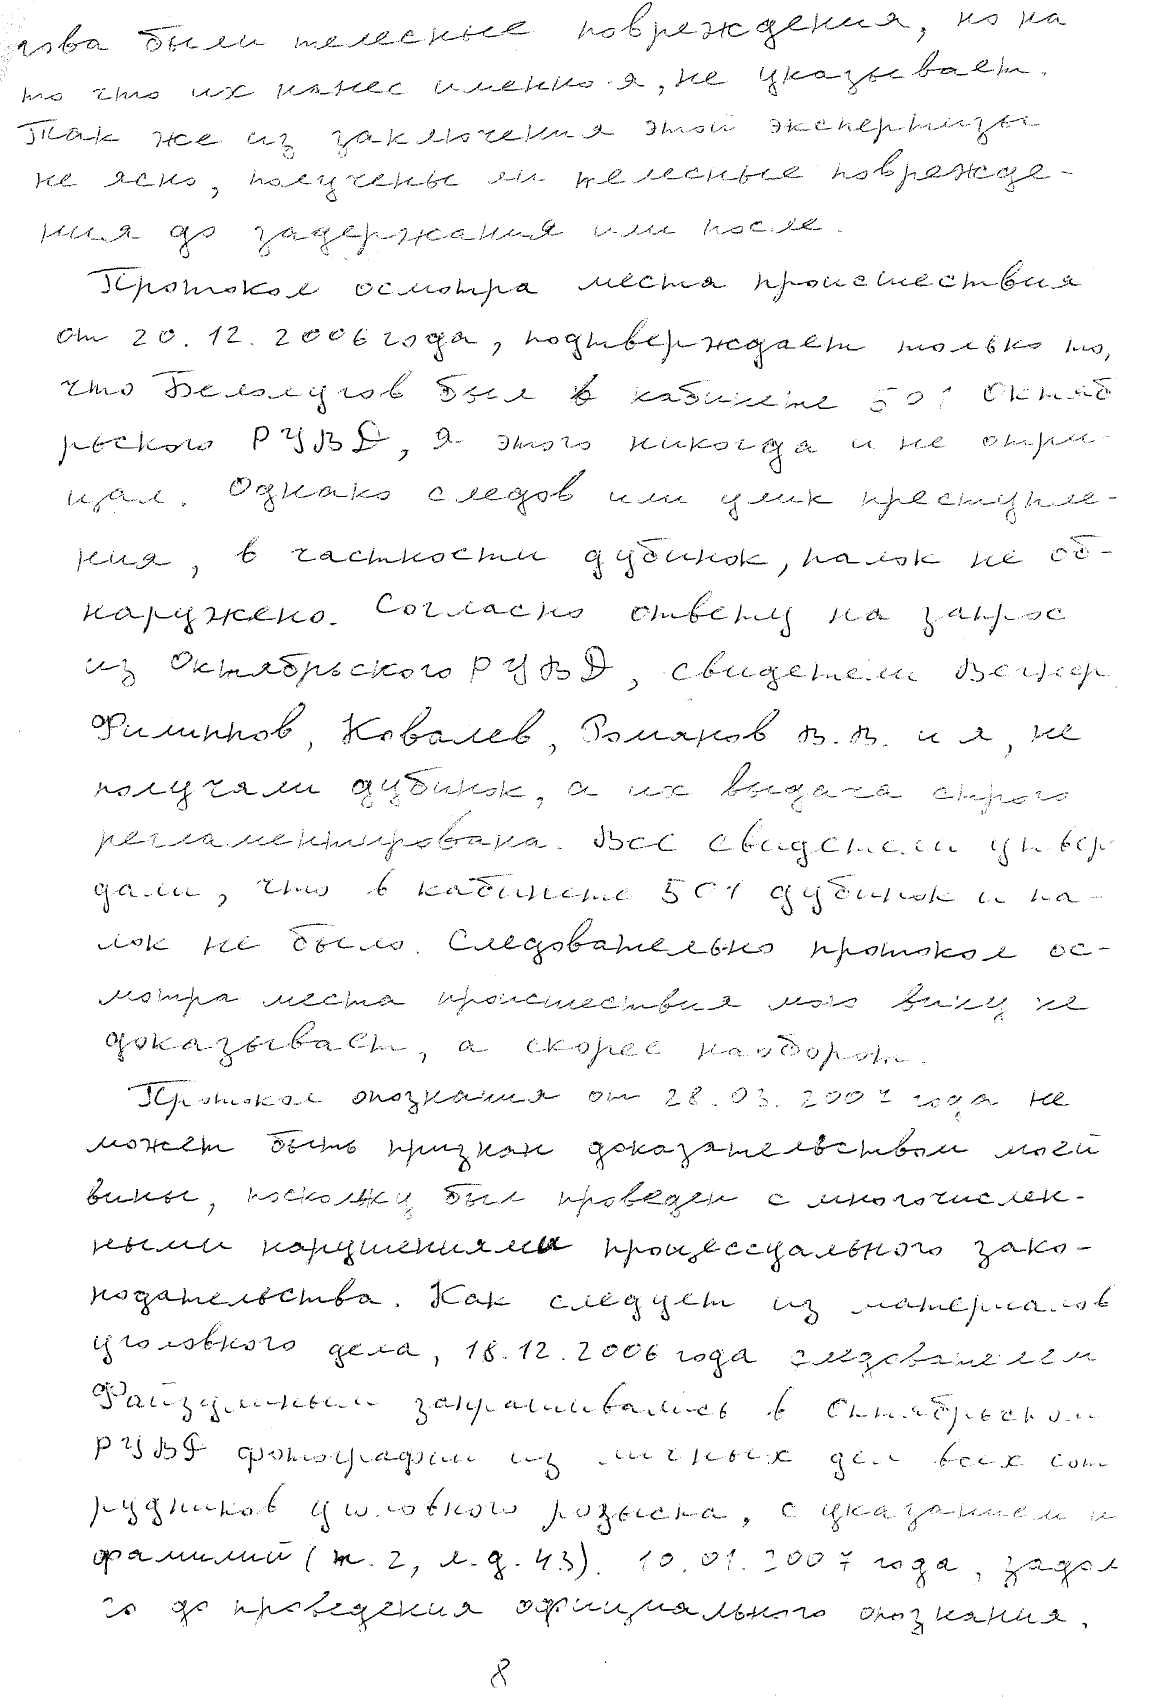 гова были телесные повреждения, но на
то что их нанес именно я, не указывает.
Так же из заключения этой экспертизы
не ясно, получены ли телесные поврежде-
ния до задержания или после.
Протокол осмотра места происшествия
от 20.12.2006 года, подтверждает только то,
что был в кабинете 501 Октяб
рьского РУВД, я этого никогда и не отри-
цал. Однако следов или улик преступле-
ния, в частности дубинок, палок не об-
наружено. Согласно ответу на запрос
из Октябрьского РУВД, свидетели
Филиппов, Ковалев, Романов В.В. и я, не
получали дубинок, а их выдача строго
регламентирована. Все свидетели утвер
дали, что в кабинете 501 дубинок и па-
лок не было. Следовательно протокол ос-
мотра места происшествия мою вину не
доказывает, а скорее наоборот.
Протокол опознания от 28.03.2007 года не
может быть признан доказательством моей
вины, поскольку был проведен с многочислен-
ными нарушениями процессуального зако-
нодательства. Как следует из материалов
уголовного дела, 18.12.2006 года следователем
запрашивались в Октябрьском
РУВД фотографии из личных дел всех сот
рудников уголовного розыска, с указанием и
фамилий (т. 2, л.д. 43). 10.01.2007 года, задол
го до проведения официального опознания,
8